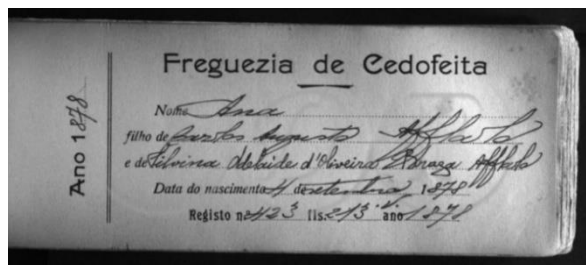 Ano 1878
Freguezia de Cedofeita
Nome Ana
filho de Carlos Augusto Afflalo
e de Silvina Adelaide d'Oliveira Braga Afflalo
Data do nascimento 4 de setembro 1878
Registo nº 423 fls. 213 v. ano 1878